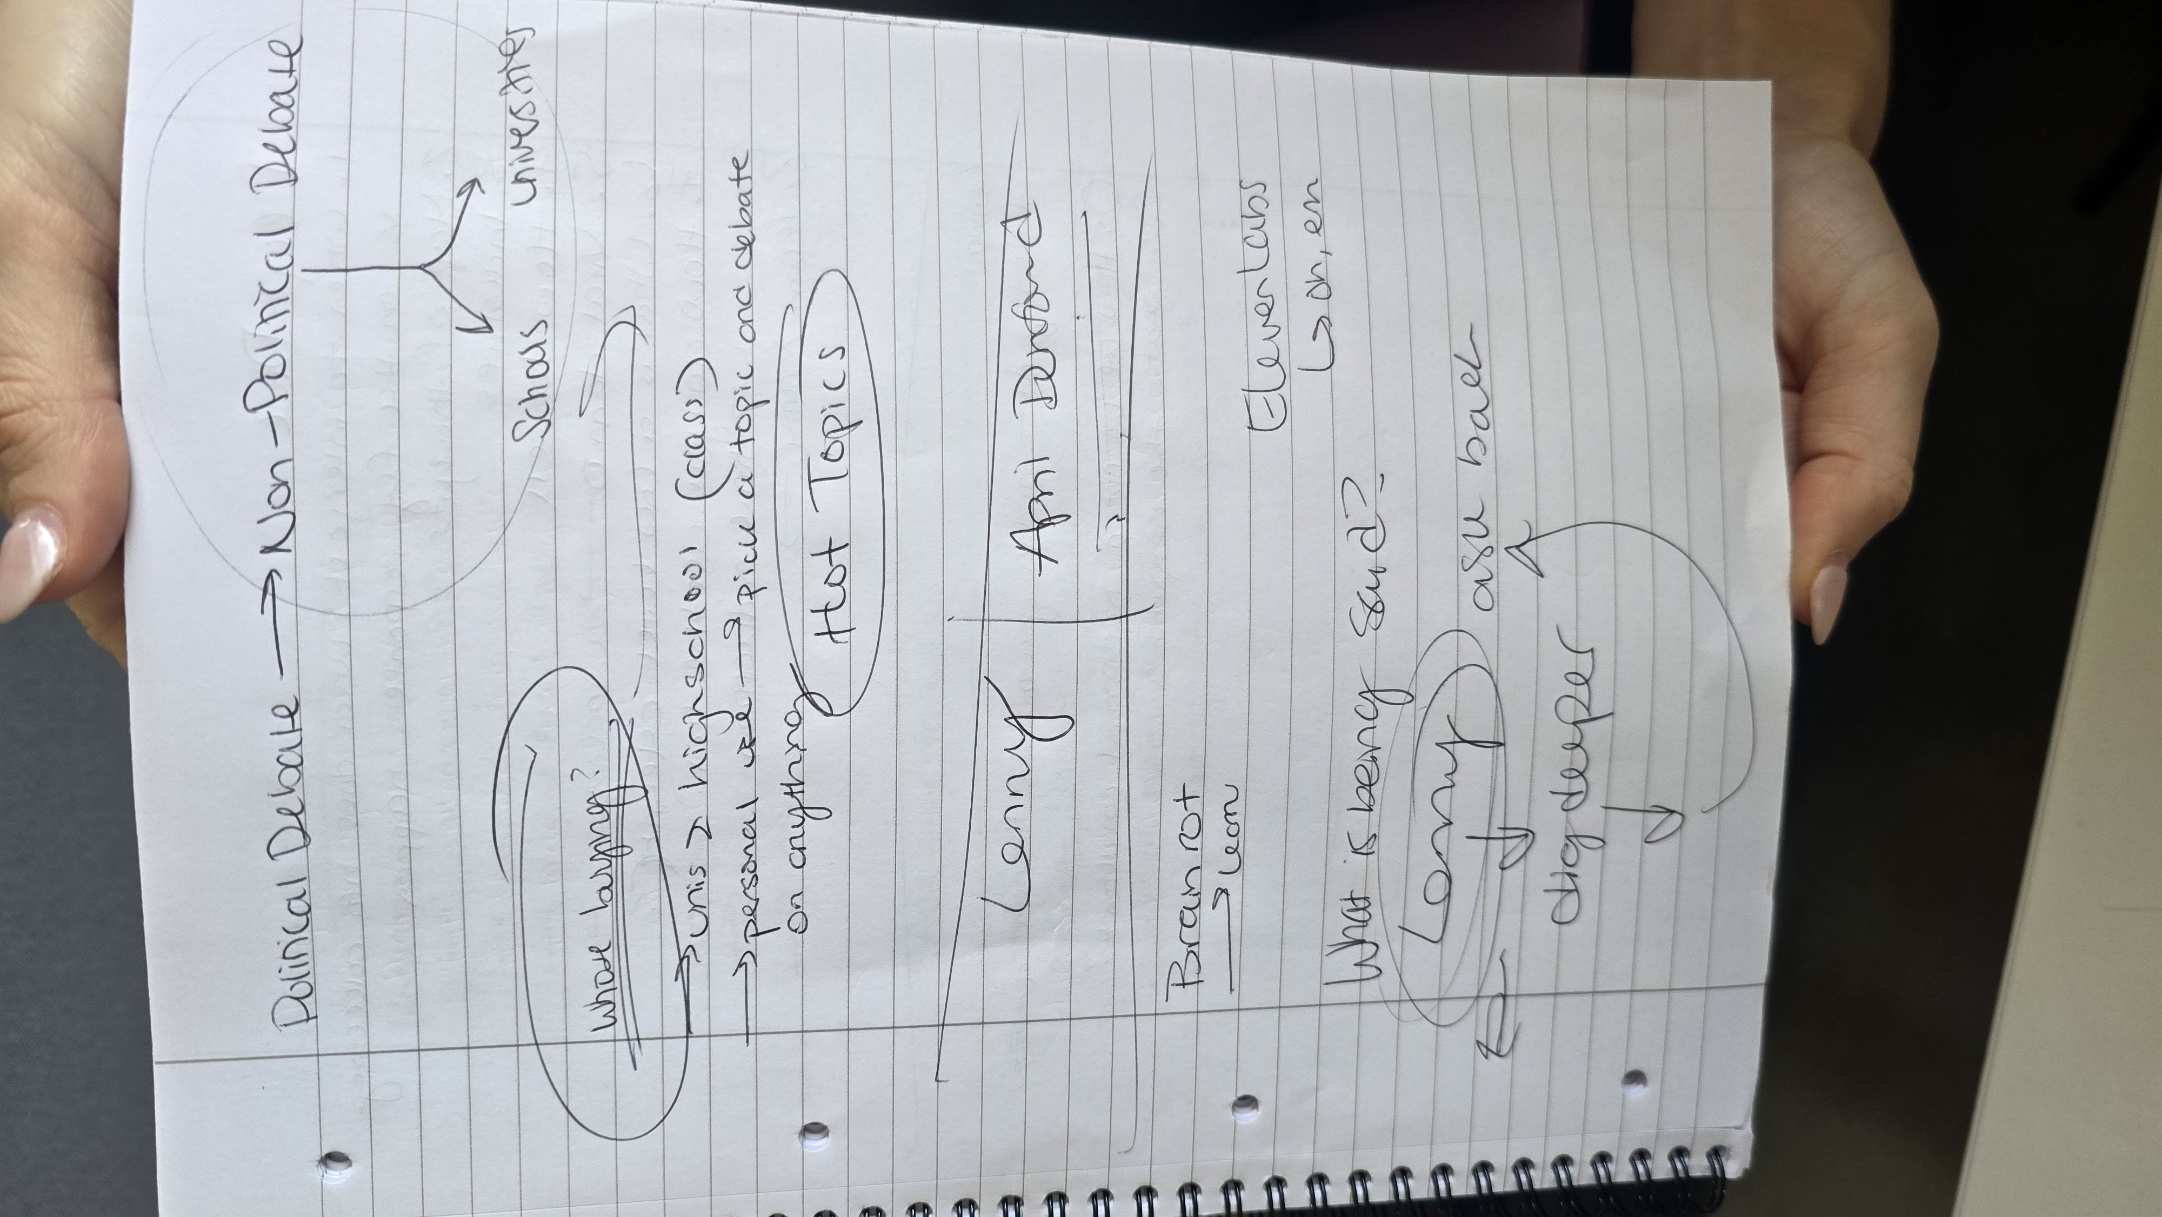 Political Debate → Non-Political Debate
Schools universities
whose buying?
→ unis & highschool (class)
→ personal use → pick a topic and debate
on anything
Hot Topics
Lenny April
Brain rot
→
ElevenLabs
↳ oh, em
What is being said?
Lenny
ask back
dig deeper